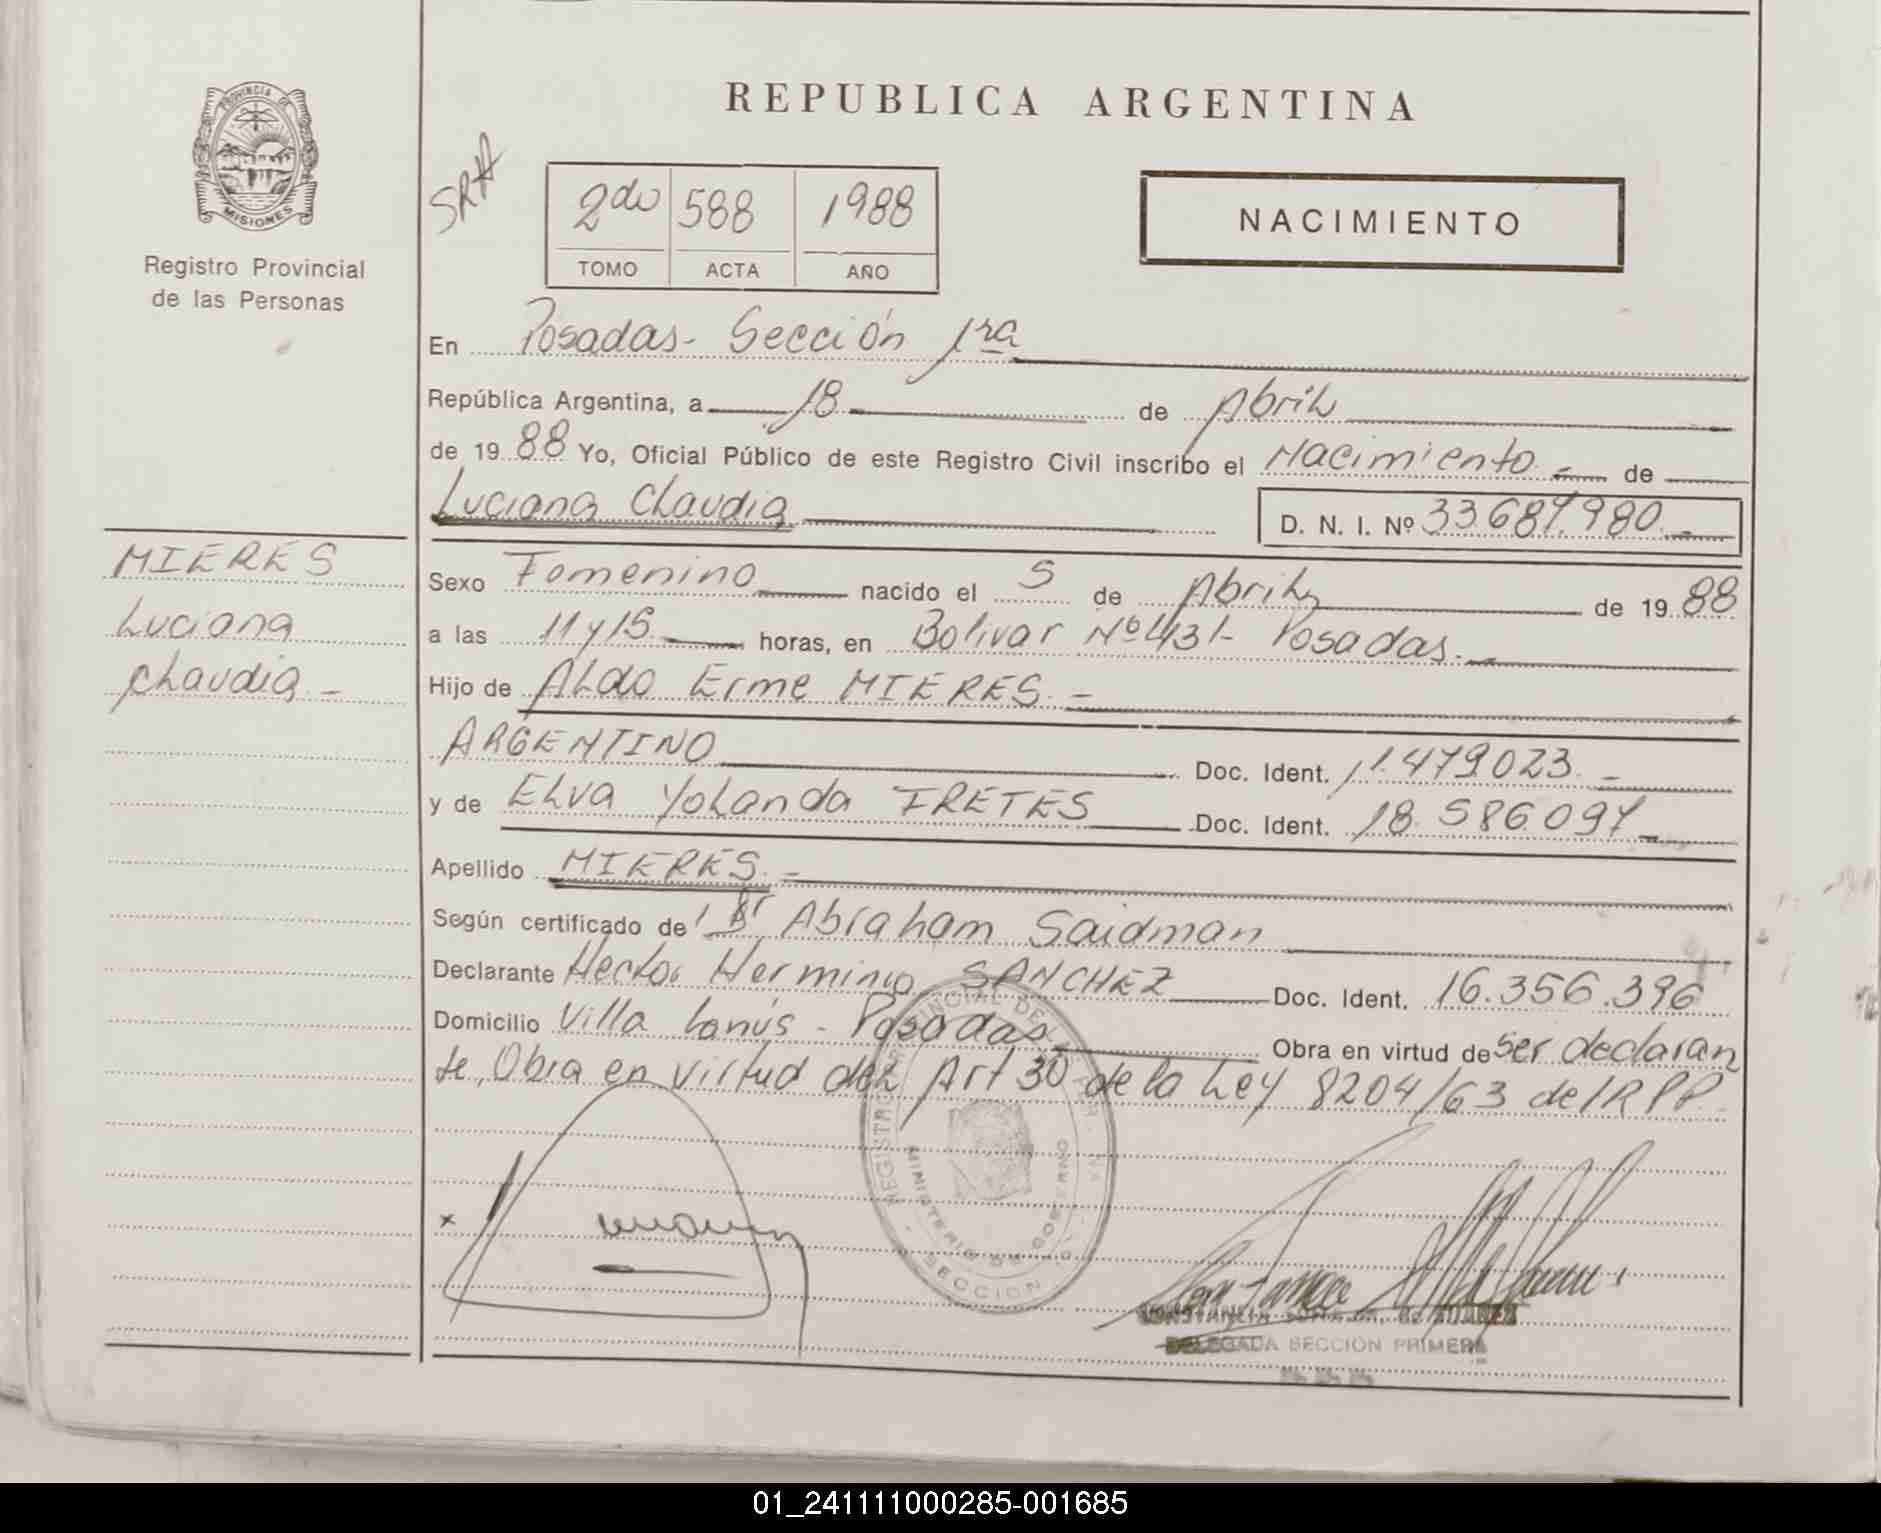 REPUBLICA ARGENTINA
PROVINCIA DE
MISIONES
Registro Provincial
de las Personas
SRA
2do 588 1988
TOMO ACTA AÑO
NACIMIENTO
En Posadas- Sección 1ra
República Argentina, a 18 de Abril
de 19 88 Yo, Oficial Público de este Registro Civil inscribo el Nacimiento.- de
Luciana Claudia D. N. I. Nº 33.687.980.-
MIERES
Luciana
Claudia.-
Sexo Femenino nacido el 5 de Abril de 19 88
a las 11 y 15. horas, en Bolivar Nº 431- Posadas.-
Hijo de Aldo Erme MIERES.-
ARGENTINO Doc. Ident. 11.479023.-
y de Elva Yolanda FRETES Doc. Ident. 18.586.097-
Apellido MIERES.-
Según certificado de Dr Abraham Saidman
Declarante Hector Herminio SANCHEZ Doc. Ident. 16.356.396
Domicilio Villa Lanús - Posadas Obra en virtud de ser declaran
te, Obra en virtud del Art 30 de la Ley 8204/63 del RPP.
x
MINISTERIO DE GOBIERNO
SECCION
DELEGADA SECCION PRIMERA
01_241111000285-001685